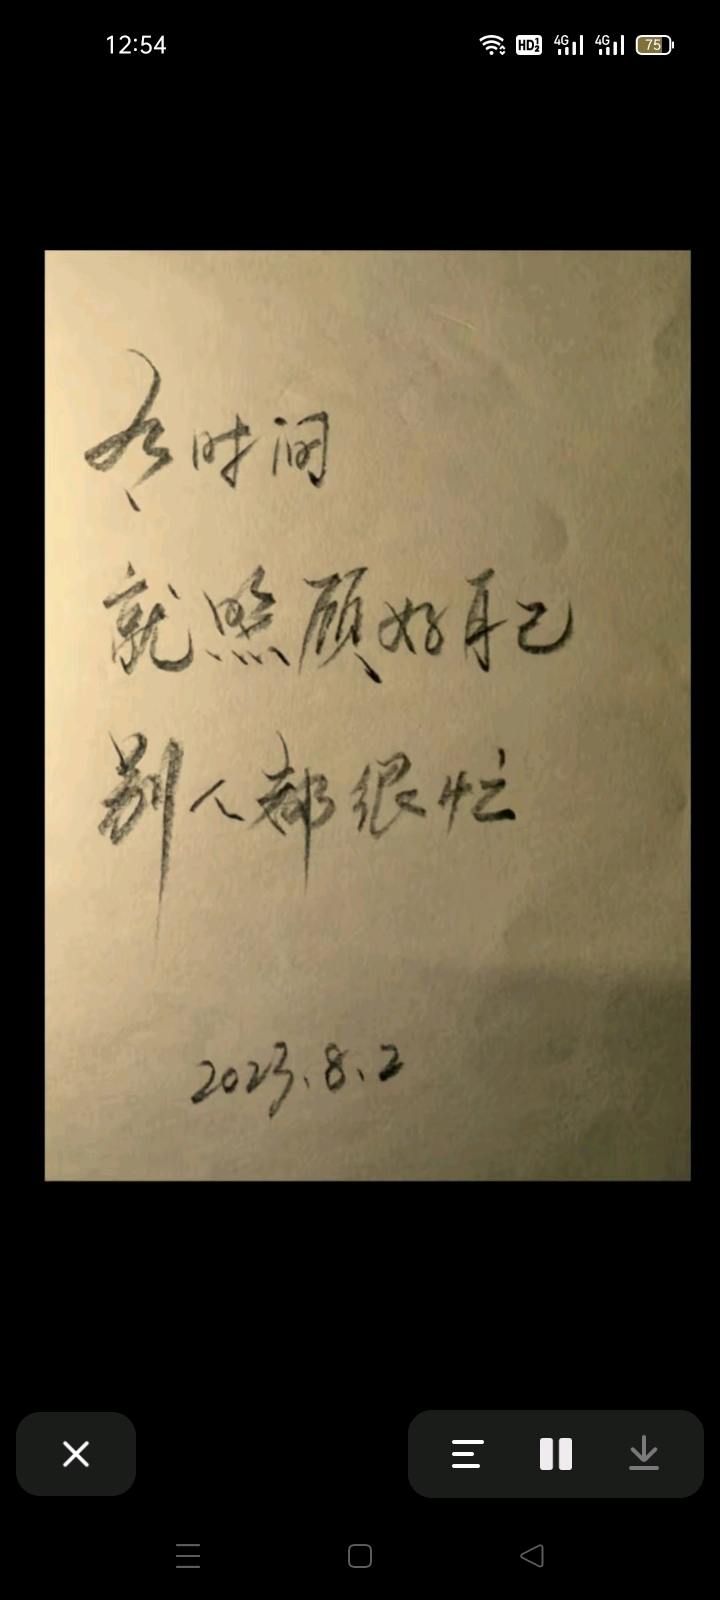 12:54
HD 1 2
4G
4G
75
有时间
就照顾好自己
别人都很忙
2023.8.2